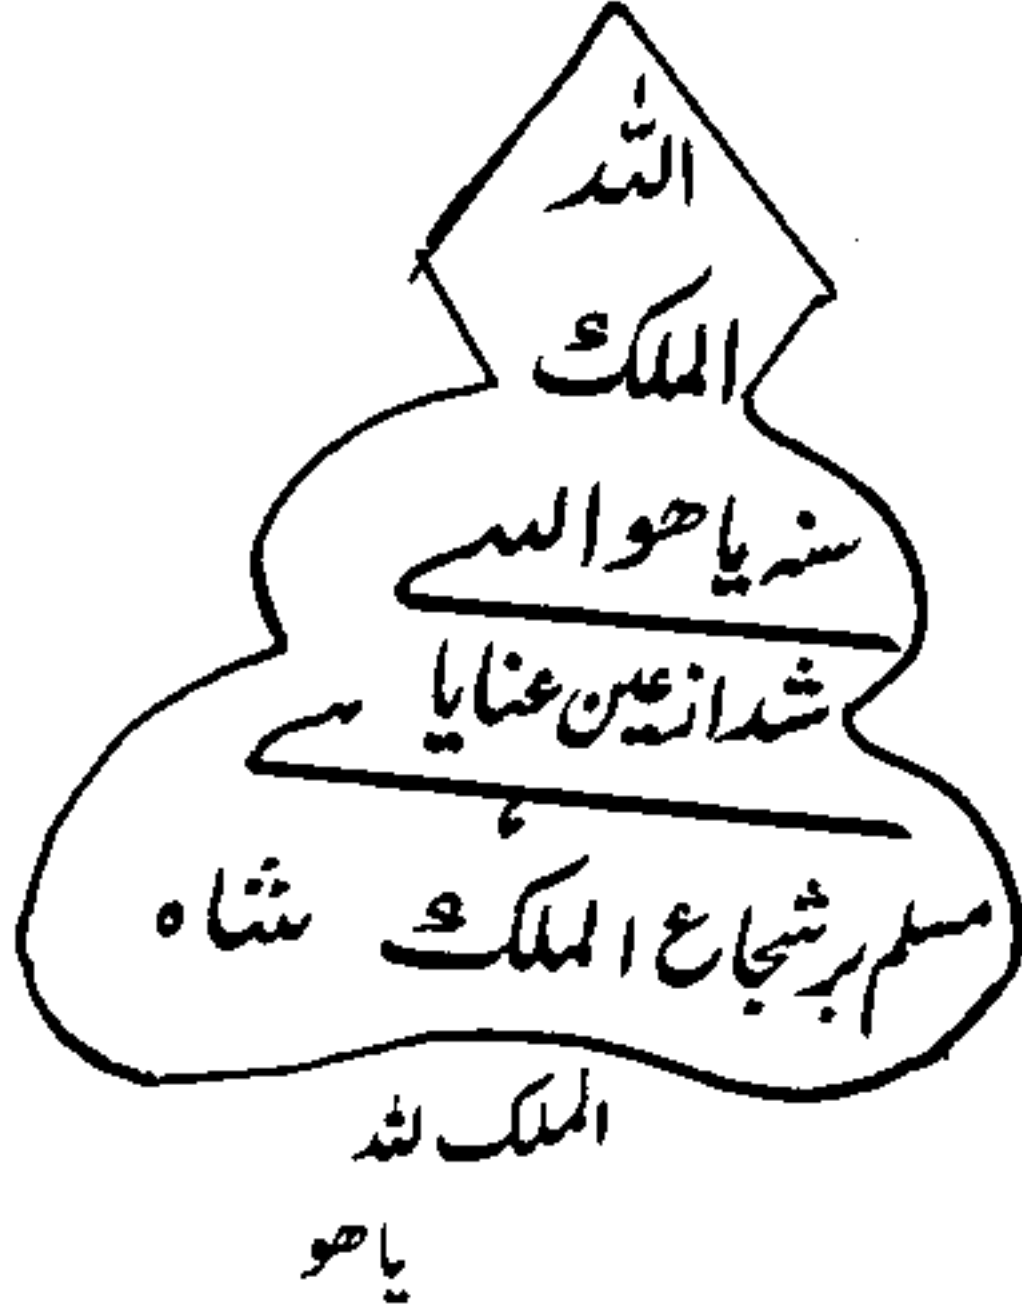 اللّٰہ
الملک
سنہ یاھو السے
شد از عین عنایا سے
مسلم بر شجاع الملک شاہ
الملک للہ
یاھو